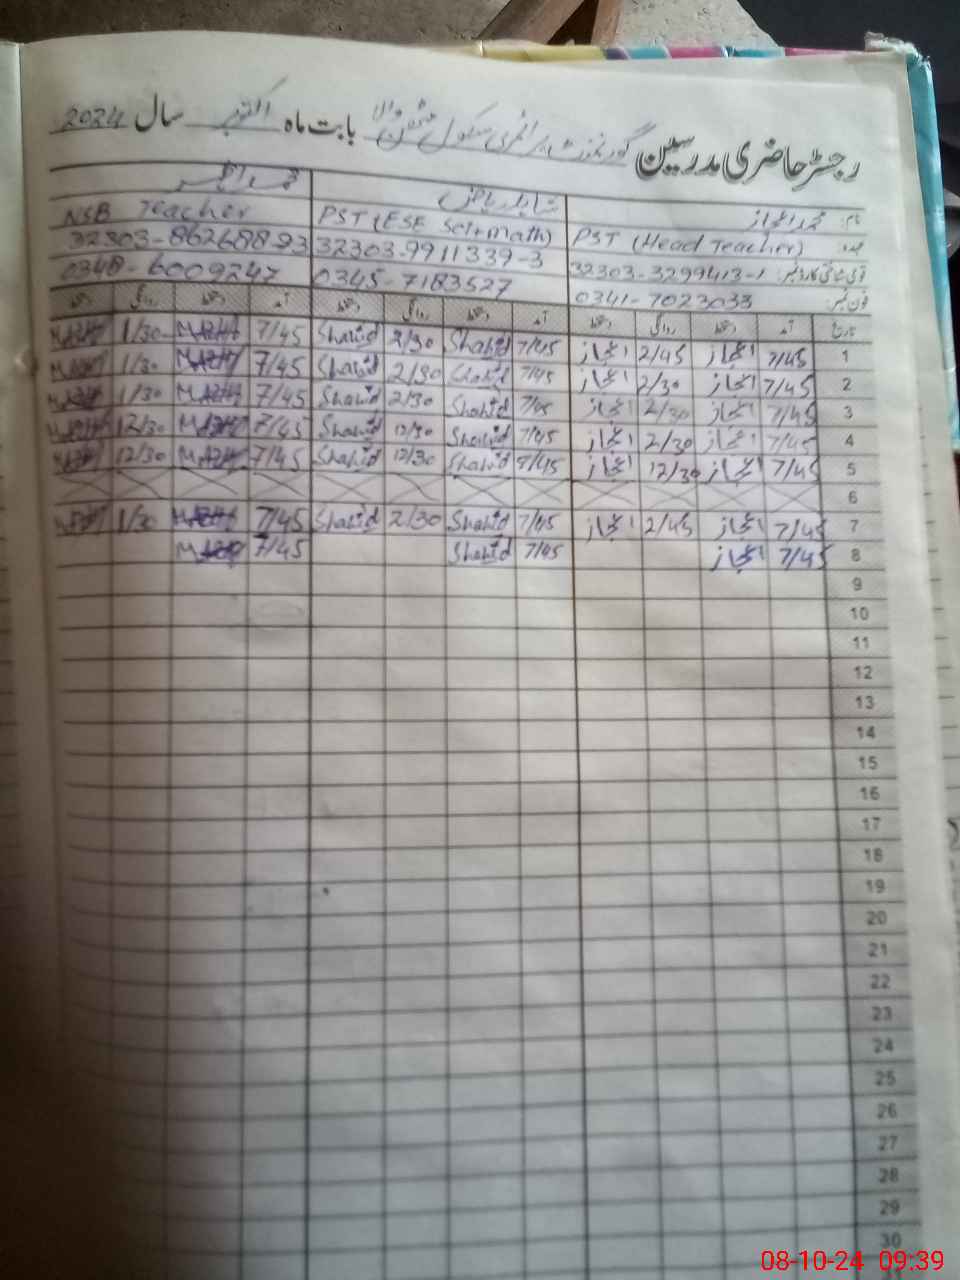 رجسٹر حاضری مدرسین گورنمنٹ پرائمری سکول والا بابت ماہ اکتوبر سال 2024
نام محمد اعجاز شاہد ریاض محمد اظہر
عہدہ PST (Head Teacher) PST (ESE Sci+math) NSB Teacher
قومی شناختی کارڈ نمبر 32303-3299413-1 32303-9911339-3 32303-8626889-3
فون نمبر 0341-7023033 0345-7183527 0348-6009247
تاریخ آمد دستخط روانگی دستخط آمد دستخط روانگی دستخط آمد دستخط روانگی دستخط
1 7/45 اعجاز 2/45 اعجاز 7/45 Shahid 2/30 Shahid 7/45 MAZHR 1/30 MAZHR
2 7/45 اعجاز 2/30 اعجاز 7/45 Shahid 2/30 Shahid 7/45 MAZHR 1/30 MAZHR
3 7/45 اعجاز 2/30 اعجاز 7/45 Shahid 2/30 Shahid 7/45 MAZHR 1/30 MAZHR
4 7/45 اعجاز 2/30 اعجاز 7/45 Shahid 12/30 Shahid 7/45 MAZHR 12/30 MAZHR
5 7/45 اعجاز 12/30 اعجاز 7/45 Shahid 12/30 Shahid 7/45 MAZHR 12/30 MAZHR
6
7 7/45 اعجاز 2/45 اعجاز 7/45 Shahid 2/30 Shahid 7/45 MAZHR 1/30 MAZHR
8 7/45 اعجاز 7/45 Shahid 7/45 MAZHR
9
10
11
12
13
14
15
16
17
18
19
20
21
22
23
24
25
26
27
28
29
30
08-10-24 09:39